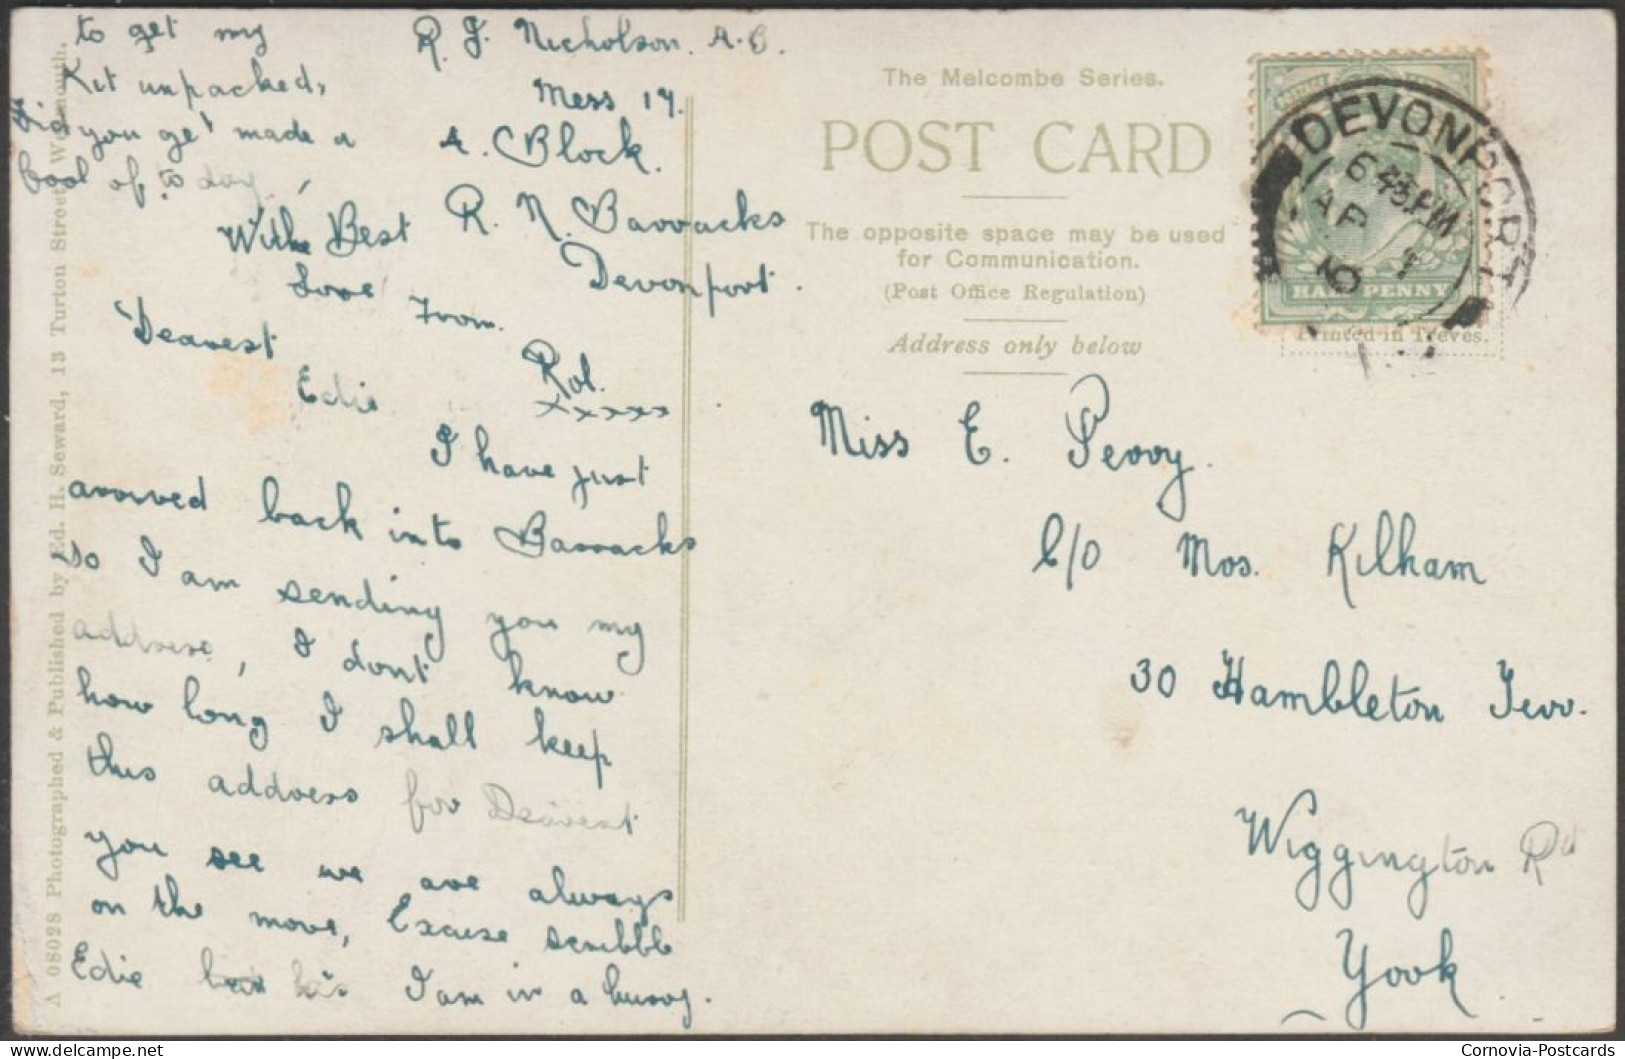 R. J. Nicholson. A.B.
Mess 17.
A. Block.
R. N. Barracks
Devonport.
Dearest
Edie
I have just
arrived back into Barracks
so I am sending you my
address, I dont know
how long I shall keep
this address for Dearest
you see we are always
on the move, Excuse scribble
Edie I am in a hurry.
to get my
Kit unpacked,
Did you get made a
fool of to day,
With Best
Love
From
Rol.
xxxxx
The Melcombe Series.
POST CARD
The opposite space may be used
for Communication.
(Post Office Regulation)
Address only below
DEVONPORT
AP 1
10
HALF PENNY
Printed in Treves.
Miss E. Perry.
C/O Mrs. Kilham
30 Hambleton Terr.
Wiggington Rd
York
A 08028 Photographed & Published by Ed. H. Seward, 13 Turton Street Weymouth.
© Cornovia-Postcards
delcampe.net